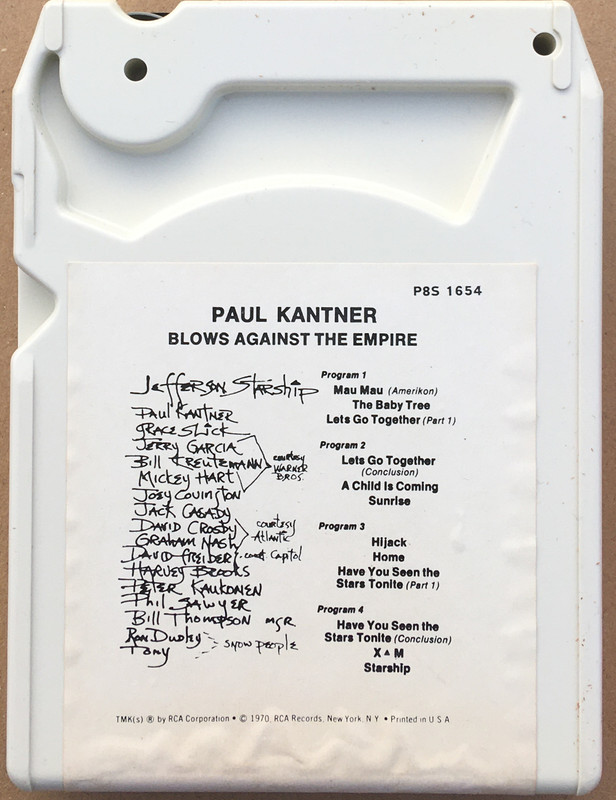 P8S 1654
PAUL KANTNER
BLOWS AGAINST THE EMPIRE
Jefferson Starship
Paul Kantner
Grace Slick
Jerry Garcia
Bill Kreutzmann
Mickey Hart
Joey Covington
courtesy
Warner
Bros.
Jack Casady
David Crosby
Graham Nash
courtesy
Atlantic
David Freiberg
Capitol
Harvey Brooks
Peter Kaukonen
Phil Sawyer
Bill Thompson mgr
Ron Dudley
Tony
snow people
Program 1
Mau Mau (Amerikon)
The Baby Tree
Lets Go Together (Part 1)
Program 2
Lets Go Together
(Conclusion)
A Child Is Coming
Sunrise
Program 3
Hijack
Home
Have You Seen the
Stars Tonite (Part 1)
Program 4
Have You Seen the
Stars Tonite (Conclusion)
X▲M
Starship
TMK(s) ® by RCA Corporation • © 1970, RCA Records, New York, N Y • Printed in U S A